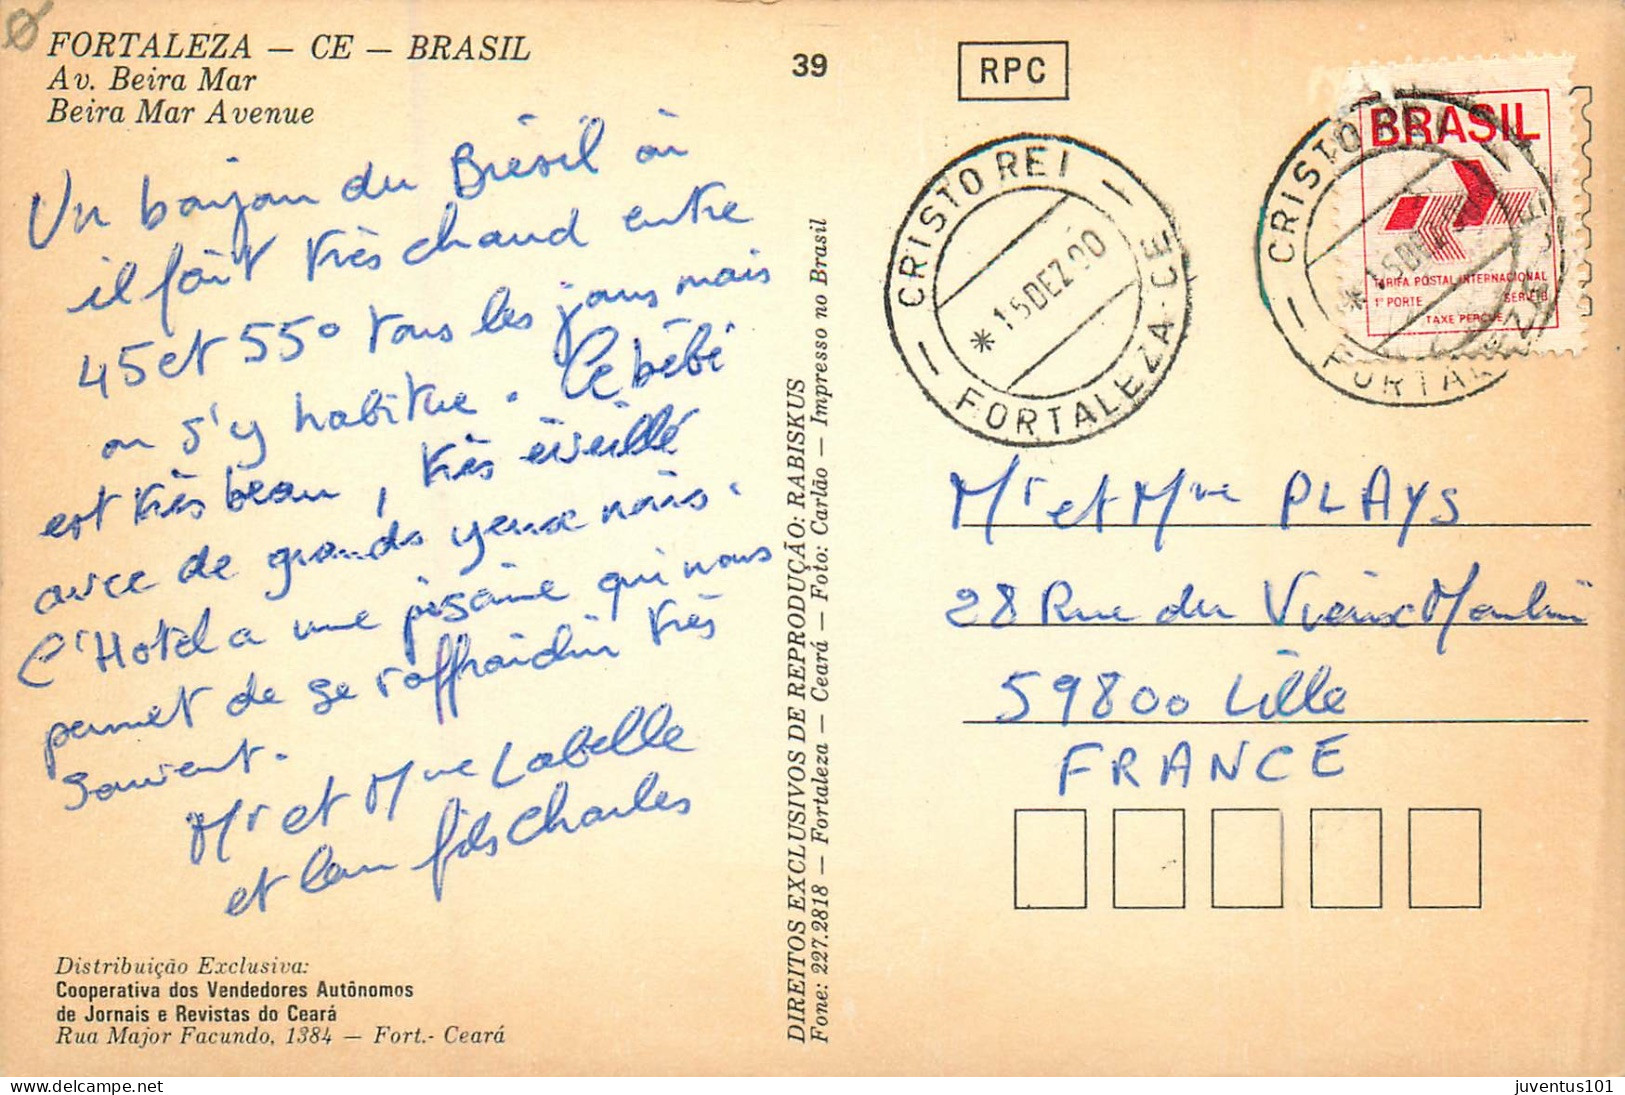 FORTALEZA — CE — BRASIL
Av. Beira Mar
Beira Mar Avenue
Un bonjour du Brésil où
il fait très chaud entre
45 et 55° tous les jours mais
on s'y habitue. Ce bébé
est très beau, très éveillé
avec de grands yeux noirs.
L'Hotel a une piscine qui nous
permet de se raffraichir très
souvent.
Mr et Mme Labelle
et leur fils Charles
Distribuição Exclusiva:
Cooperativa dos Vendedores Autônomos
de Jornais e Revistas do Ceará
Rua Major Facundo, 1384 — Fort.- Ceará
39
DIREITOS EXCLUSIVOS DE REPRODUÇÃO: RABISKUS
Fone: 227.2818 — Fortaleza — Ceará — Foto: Carlão — Impresso no Brasil
RPC
CRISTO REI
*15DEZ90
FORTALEZA-CE
BRASIL
TARIFA POSTAL INTERNACIONAL
1º PORTE
TAXE PERÇUE
CRISTO
*15DEZ
FORTALEZA
CE
Mr et Mme PLAYS
28 Rue du Vieux Moulin
59800 Lille
FRANCE
juventus101